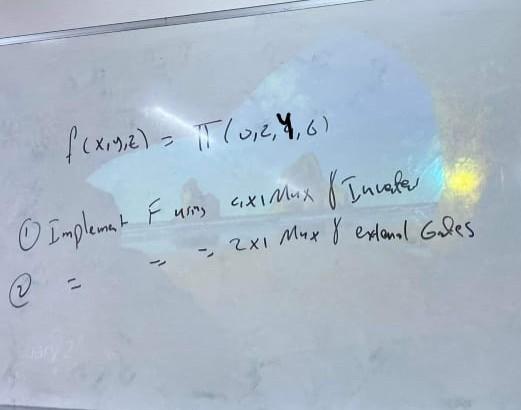 f(x,y,z) = π(0,2,4,6)
① Implement F using 4x1 Mux & Inverter
② = = = 2x1 Mux & external Gates